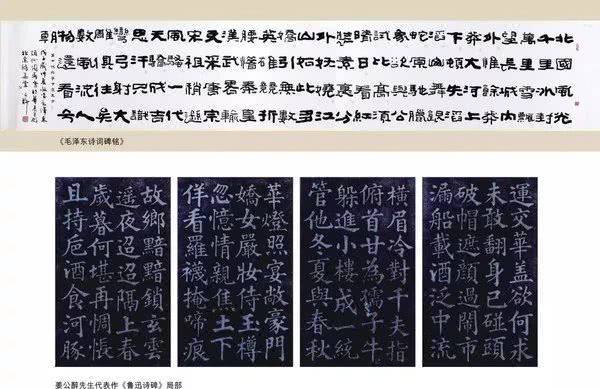 北國風光
千里冰封
萬里雪飄
望長城内
外惟餘莽
莽大河上
下頓失滔
滔山舞銀
蛇原馳臘
象欲與天公
試比高須
晴日看紅
裝素裹分
外妖嬈江
山如此多
嬌引無數
英雄競折
腰惜秦皇
漢武略輸
文采唐宗
宋祖稍遜
風騷一代
天驕成吉
思汗只識
彎弓射大
雕俱往矣
數風流人
物還看今
朝
《毛泽东诗词碑铭》
運交華蓋欲何求
未敢翻身已碰頭
破帽遮顏過鬧市
漏船載酒泛中流
横眉冷對千夫指
俯首甘為孺子牛
躲進小樓成一統
管他冬夏與春秋
華燈照宴敞豪門
嬌女嚴妝侍玉樽
忽憶情親焦土下
佯看羅襪掩啼痕
故鄉黯黯鎖玄雲
遥夜迢迢隔上春
歲暮何堪再惆悵
且持卮酒食河豚
姜公醉先生代表作《鲁迅诗碑》局部